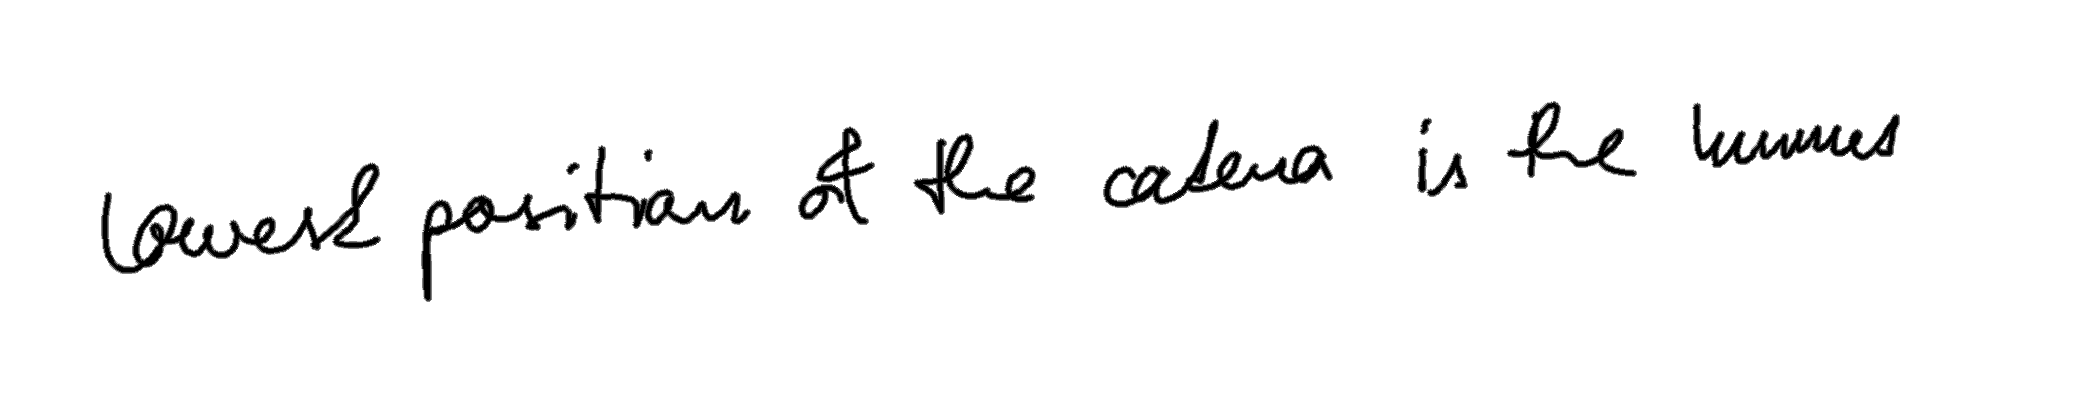 lowest position of the catena is the humus